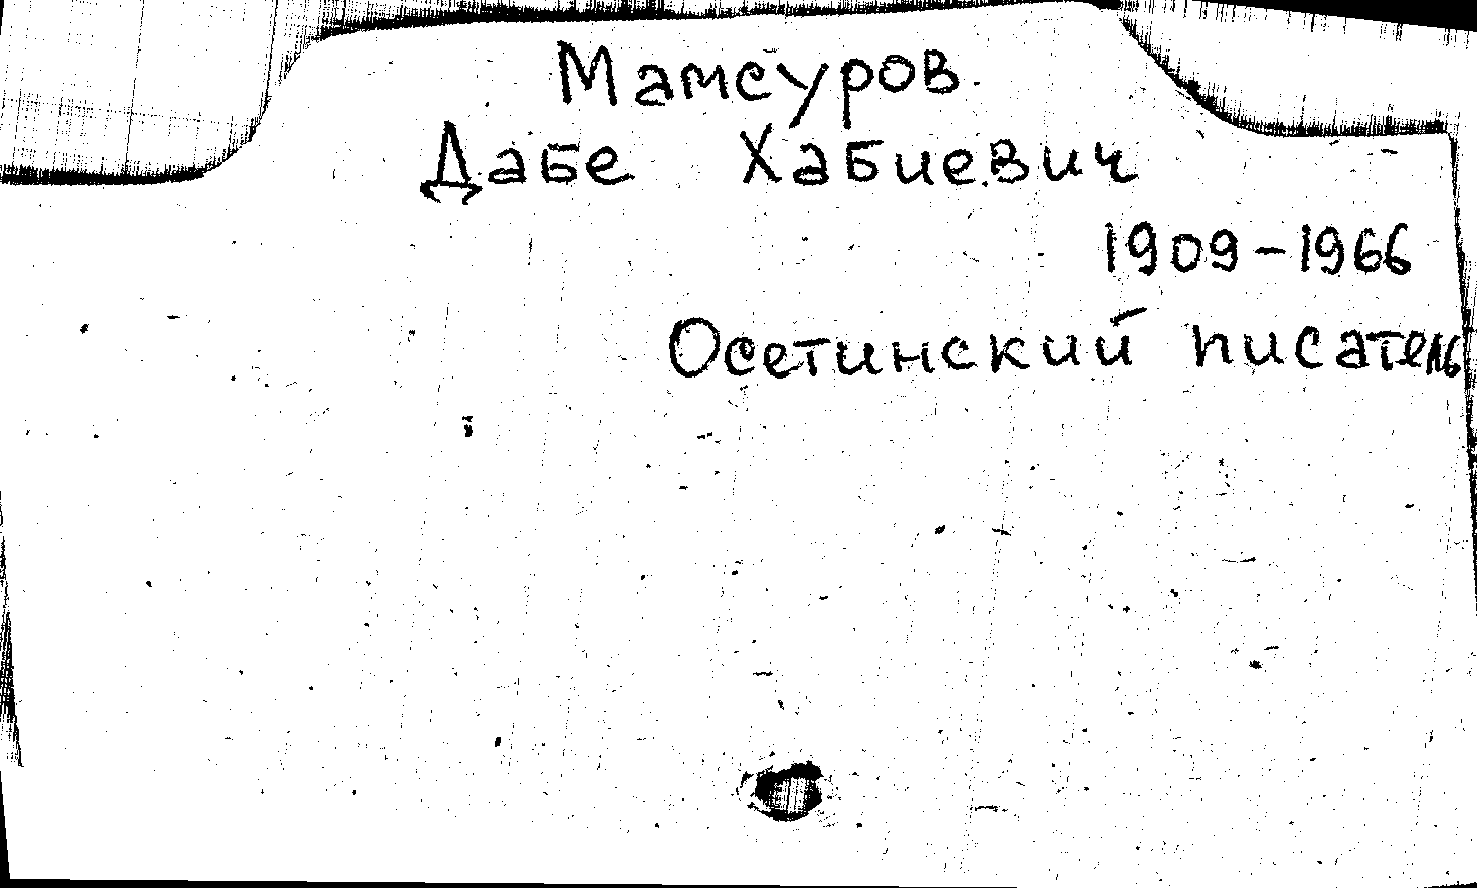 Мамсуров
Дабе Хабиевич
1909-1966
Осетинский писатель